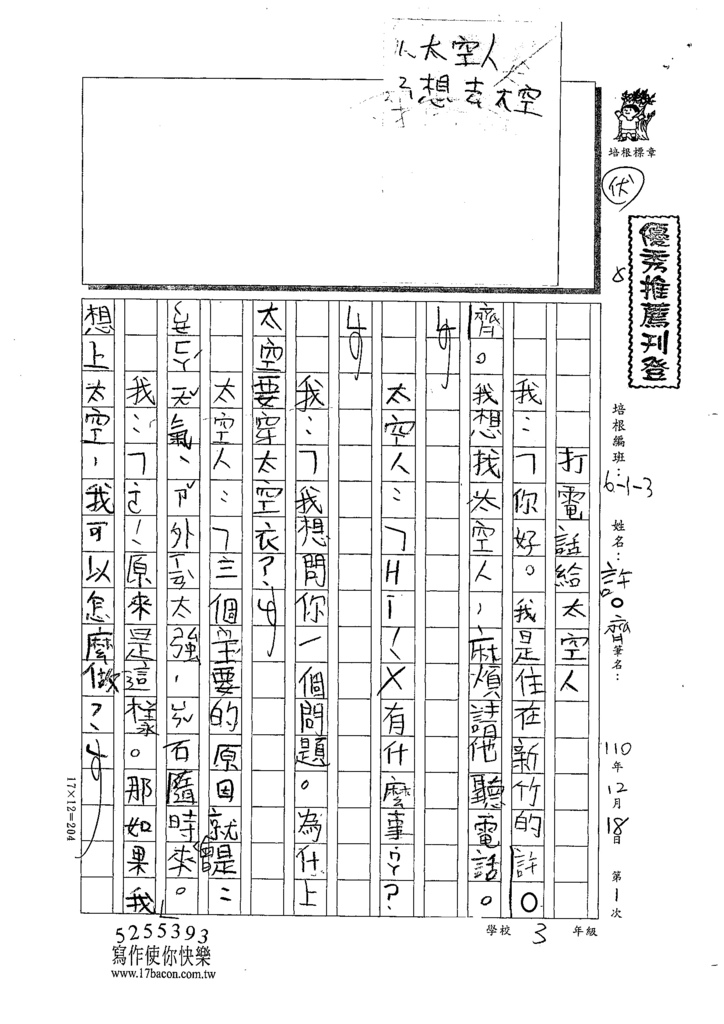 太空人
想去太空
培根標章
優
優秀推薦刊登
培根編班：6-1-3 姓名：許〇齊 筆名：
110年12月18日 第1次
打電話給太空人
我：「你好。我是住在新竹的許〇
齊。我想找太空人，麻煩請他聽電話。
」
太空人：「Hi！有什麼事ㄚ？
」
我：「我想問你一個問題。為什上
太空要穿太空衣？」
太空人：「三個主要的原因就是：
外太強，石隨時會來。
我：「ㄜ！原來是這樣。那如果我
想上太空，我可以怎麼做？」
17×12=204
學校 3 年級
5255393
寫作使你快樂
www.17bacon.com.tw